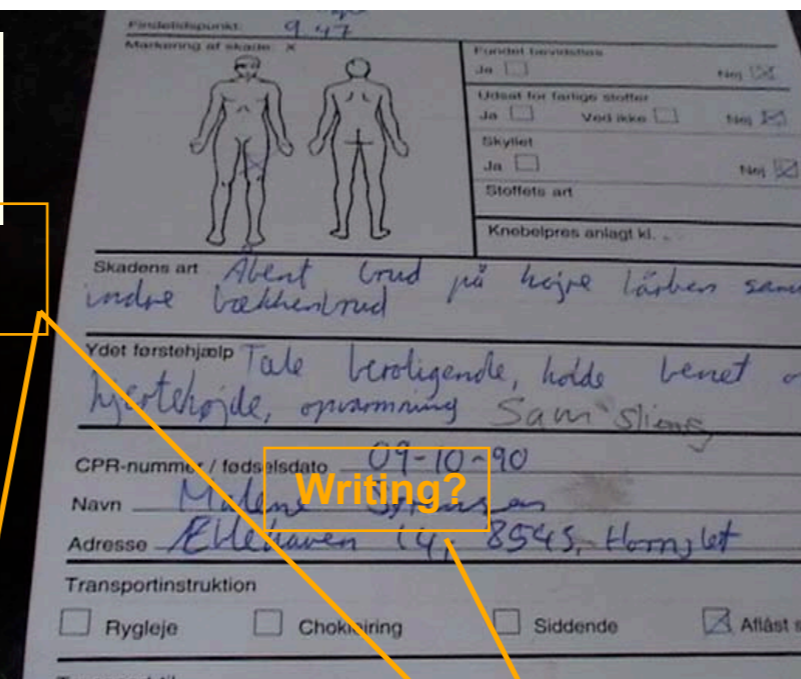 Findetidspunkt: 9.47
Markering af skade: X
Fundet bevidstløs
Ja Nej
Udsat for farlige stoffer
Ja Ved ikke Nej
Skyllet
Ja Nej
Stoffets art
Knebelpres anlagt kl.
Skadens art Åbent brud på højre lårben
indre bækkenbrud
Ydet førstehjælp Tale beroligende, holde benet
hjertehøjde, opvarmning Sam
CPR-nummer / fødselsdato 09-10-90
Writing?
Navn Malene
Adresse Æblehaven 14, 8545, Hornslet
Transportinstruktion
Rygleje Siddende Aflåst